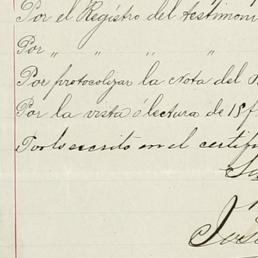 Por el Registro del testimoni
Por " " " "
Por protocolizar la nota del
Por la vista ó lectura de 18 f
Por lo escrito en el certifi